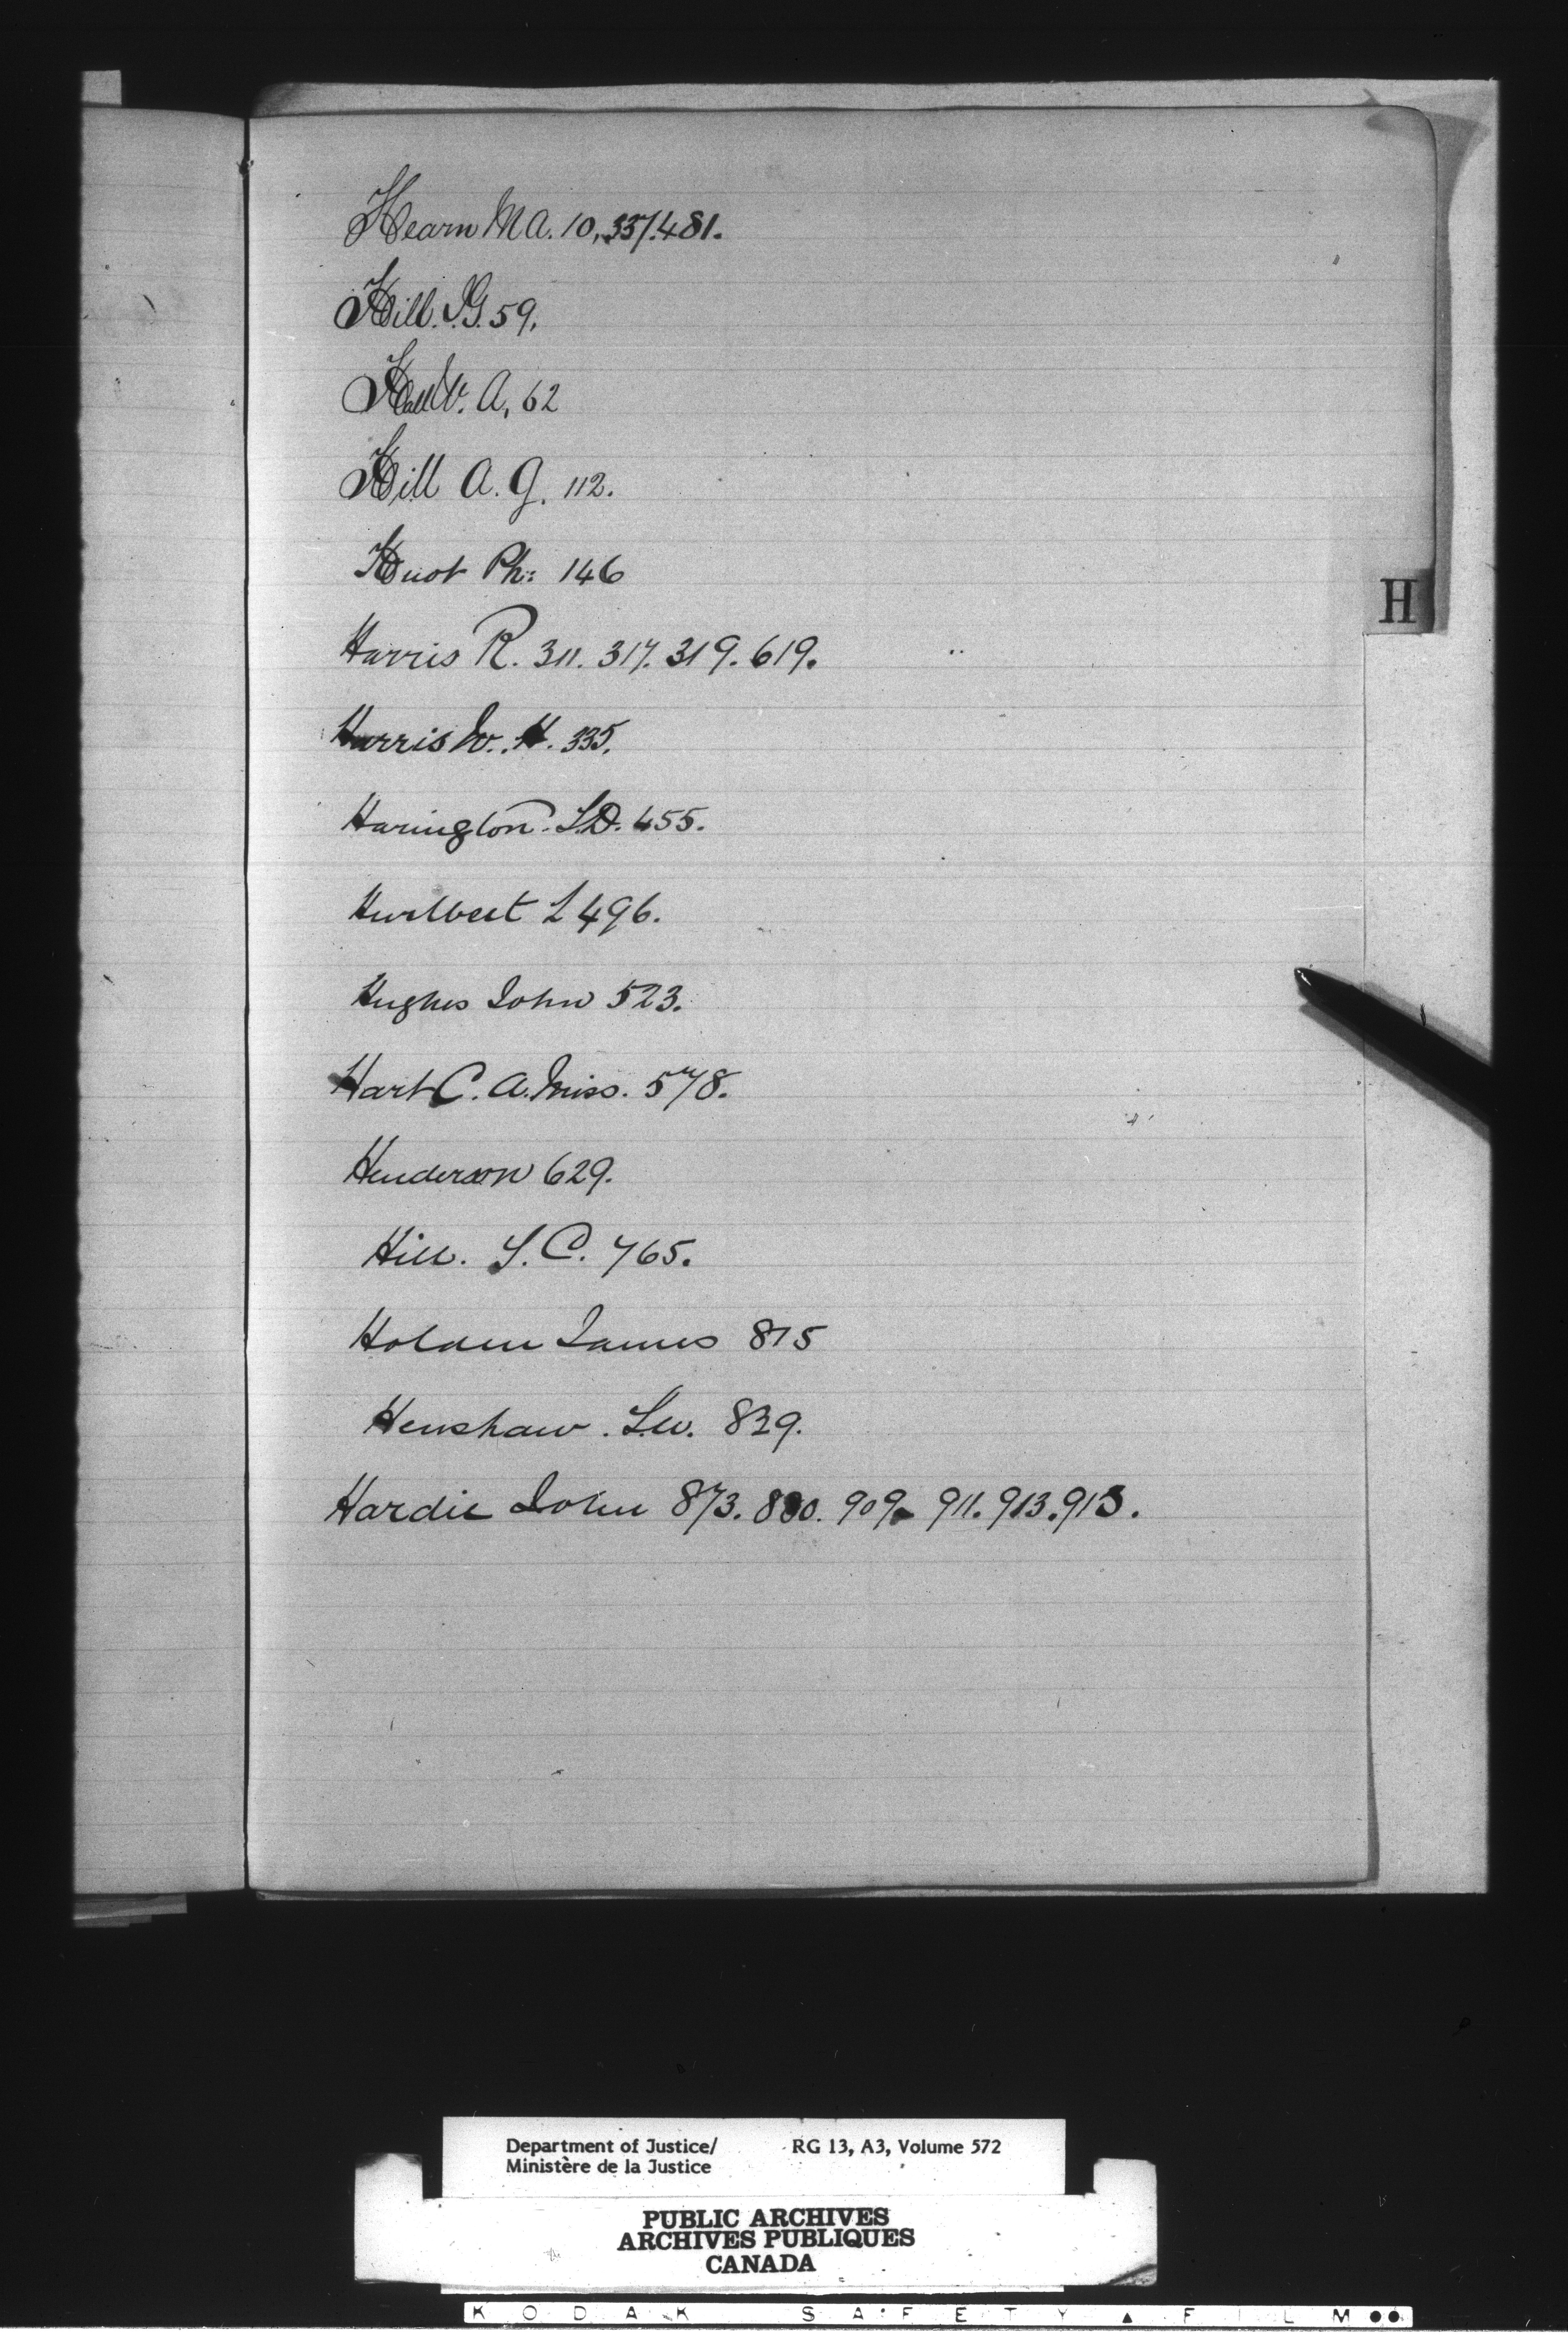 Hearn M A. 10, 337. 481.
Hill. J.G. 59,
Hall W. A, 62
Hill A. G. 112.
Huot Ph: 146
H
Harris R. 311. 317. 319. 619.
Harris W. H. 335.
Harington. T.D. 455.
Hurlbert L 496.
Hughes John 523.
Hart C. A. Miss. 578.
Henderson 629.
Hill. S. C. 765.
Holden James 815
Henshaw. F.W. 829.
Hardie John 873. 880. 909. 911. 913. 915.
Department of Justice/ RG 13, A3, Volume 572
Ministère de la Justice
PUBLIC ARCHIVES
ARCHIVES PUBLIQUES
CANADA
KODAK SAFETY ▲ FILM ●●